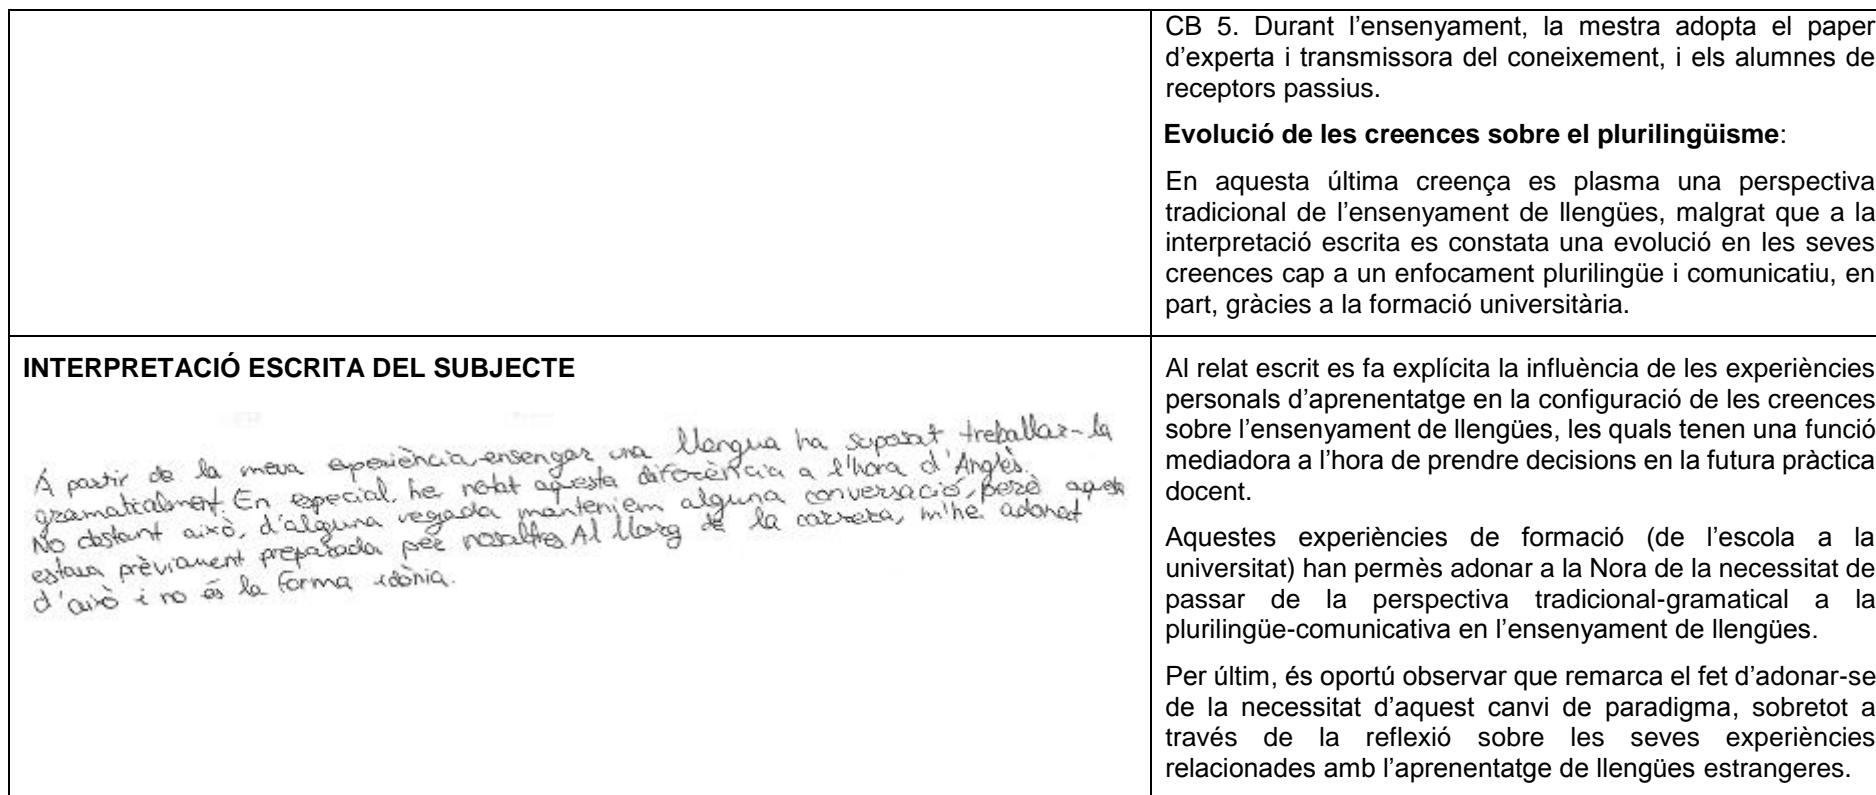 CB 5. Durant l’ensenyament, la mestra adopta el paper
d’experta i transmissora del coneixement, i els alumnes de
receptors passius.
Evolució de les creences sobre el plurilingüisme:
En aquesta última creença es plasma una perspectiva
tradicional de l’ensenyament de llengües, malgrat que a la
interpretació escrita es constata una evolució en les seves
creences cap a un enfocament plurilingüe i comunicatiu, en
part, gràcies a la formació universitària.
INTERPRETACIÓ ESCRITA DEL SUBJECTE
A partir de la meva experiència, ensenyar una llengua ha suposat treballar-la
gramaticalment. En especial, he notat aquesta diferència a l'hora d'Anglès.
No obstant això, d'alguna vegada manteniem alguna conversació, però aquesta
estava prèviament preparada per nosaltres. Al llarg de la carrera, m'he adonat
d'això i no és la forma idònia.
Al relat escrit es fa explícita la influència de les experiències
personals d’aprenentatge en la configuració de les creences
sobre l’ensenyament de llengües, les quals tenen una funció
mediadora a l’hora de prendre decisions en la futura pràctica
docent.
Aquestes experiències de formació (de l’escola a la
universitat) han permès adonar a la Nora de la necessitat de
passar de la perspectiva tradicional-gramatical a la
plurilingüe-comunicativa en l’ensenyament de llengües.
Per últim, és oportú observar que remarca el fet d’adonar-se
de la necessitat d’aquest canvi de paradigma, sobretot a
través de la reflexió sobre les seves experiències
relacionades amb l’aprenentatge de llengües estrangeres.